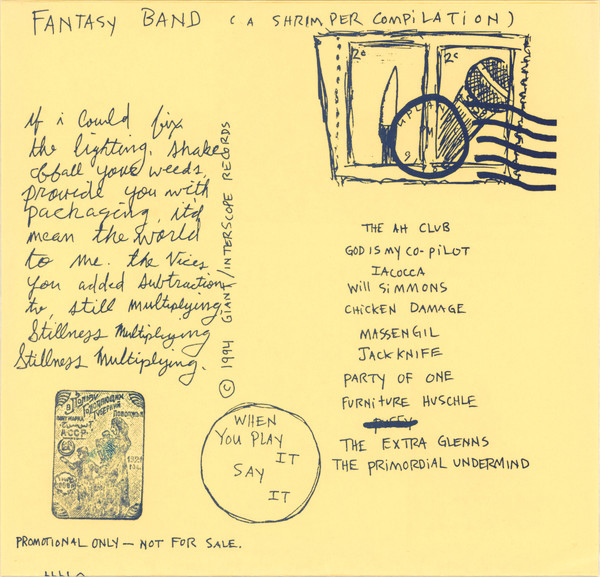 FANTASY BAND (A SHRIMPER COMPILATION)
2¢ 2¢
If i could fix
the lighting, shake
off all your weeds,
provide you with
packaging, it'd
mean the world
to me. the Vices
you added subtraction
to, still multiplying,
Stillness Multiplying
Stillness Multiplying.
© 1994 GIANT/INTERSCOPE RECORDS
THE AH CLUB
GOD IS MY CO-PILOT
IACOCCA
Will SIMMONS
CHICKEN DAMAGE
MASSENGIL
JACKKNIFE
PARTY OF ONE
FURNITURE HUSCHLE
THE EXTRA GLENNS
THE PRIMORDIAL UNDERMIND
В ПОЛЬЗУ
ГОЛОДАЮЩИМ
А.С.С.Р.
WHEN
YOU PLAY
IT
SAY
IT
PROMOTIONAL ONLY — NOT FOR SALE.